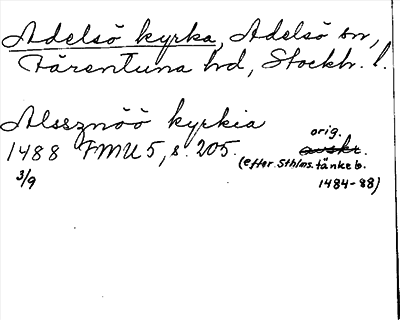 Adelsö kyrka, Adelsö sn,
Färentuna hd, Stockh. l.
Alssznöö kyrkia
1488 FMU 5, s. 205. orig. avskr.
3/9 (efter Sthlms tänkeb. 1484-88)